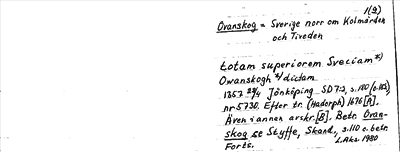 1(2)
Ovanskog = Sverige norr om Kolmården
och Tiveden
totam superiorem Sveciam *)
Owanskogh */ dictam
1357 28/4 Jönköping SD 7:2, s. 180
nr 5730. Efter tr. (Hadorph) 1676 [A].
Även i annen avskr. [B]. Betr. Ovan-
skog se Styffe, Skand., s. 110 o. betr.
Forts. L. Aks 1980